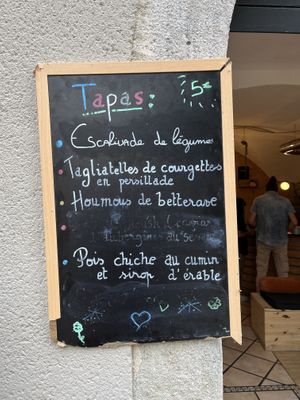 Tapas :
5€
Escalivade de légumes
Tagliatelles de courgettes
en persillade
Houmous de betterave
Pois chiche au cumin
et sirop d'érable